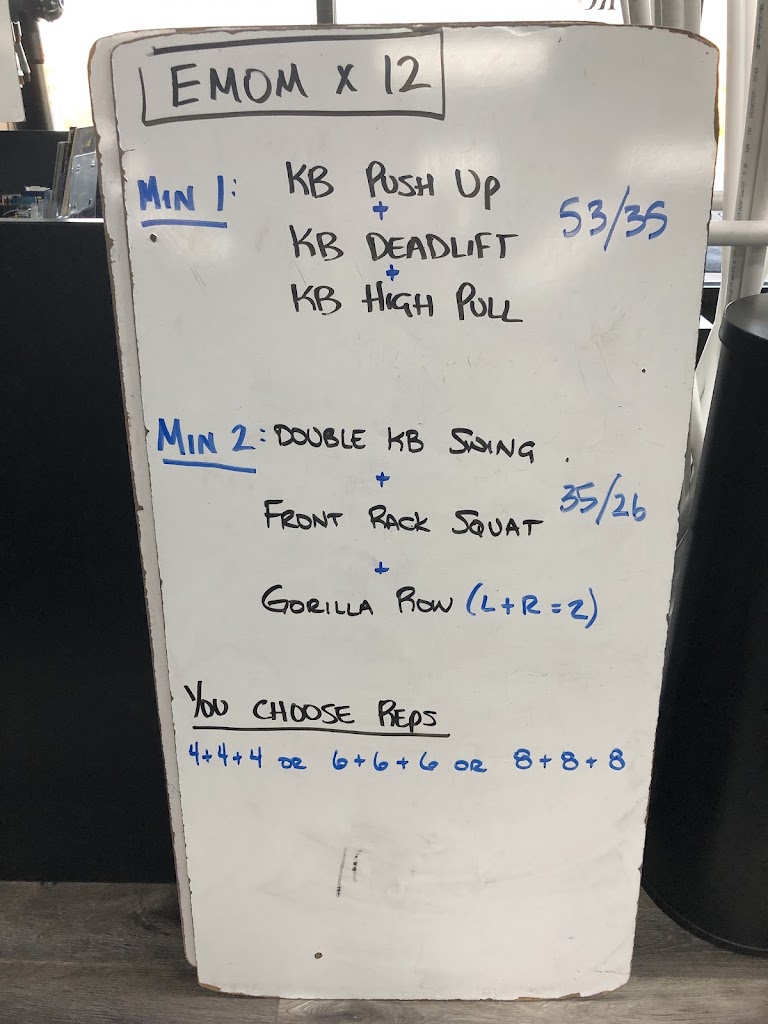 EMOM x 12
MIN 1: KB PUSH UP
+
KB DEADLIFT 53/35
+
KB HIGH PULL
MIN 2: DOUBLE KB SWING
+
FRONT RACK SQUAT 35/26
+
GORILLA ROW (L+R=2)
YOU CHOOSE REPS
4+4+4 OR 6+6+6 OR 8+8+8